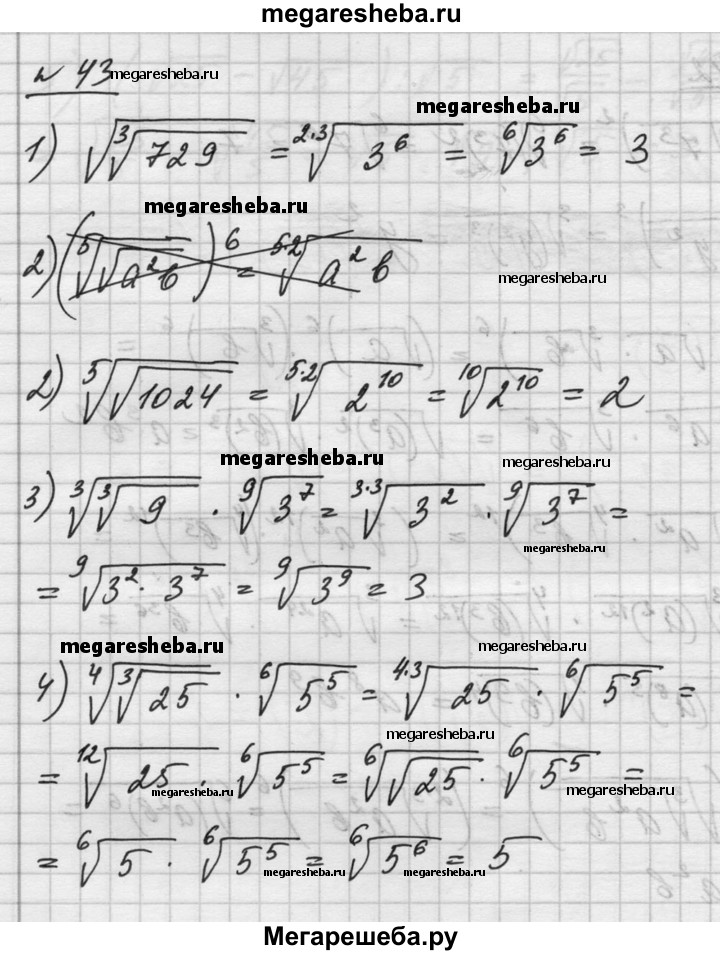 megaresheba.ru
№ 43 megaresheba.ru
megaresheba.ru
1) √∛729 = ²·³√3⁶ = ⁶√3⁶ = 3
megaresheba.ru
2) (⁵√√a²b)⁶ = ⁵·²√a²b
megaresheba.ru
2) ⁵√√1024 = ⁵·²√2¹⁰ = ¹⁰√2¹⁰ = 2
megaresheba.ru
megaresheba.ru
3) ³√³√9 · ⁹√3⁷ = ³·³√3² · ⁹√3⁷ =
megaresheba.ru
= ⁹√3² · 3⁷ = ⁹√3⁹ = 3
megaresheba.ru
megaresheba.ru
4) ⁴√³√25 · ⁶√5⁵ = ⁴·³√25 · ⁶√5⁵ =
megaresheba.ru
= ¹²√25 · ⁶√5⁵ = ⁶√√25 · ⁶√5⁵ =
megaresheba.ru
megaresheba.ru
= ⁶√5 · ⁶√5⁵ = ⁶√5⁶ = 5
megaresheba.ru
megaresheba.ru
Мегарешеба.ру